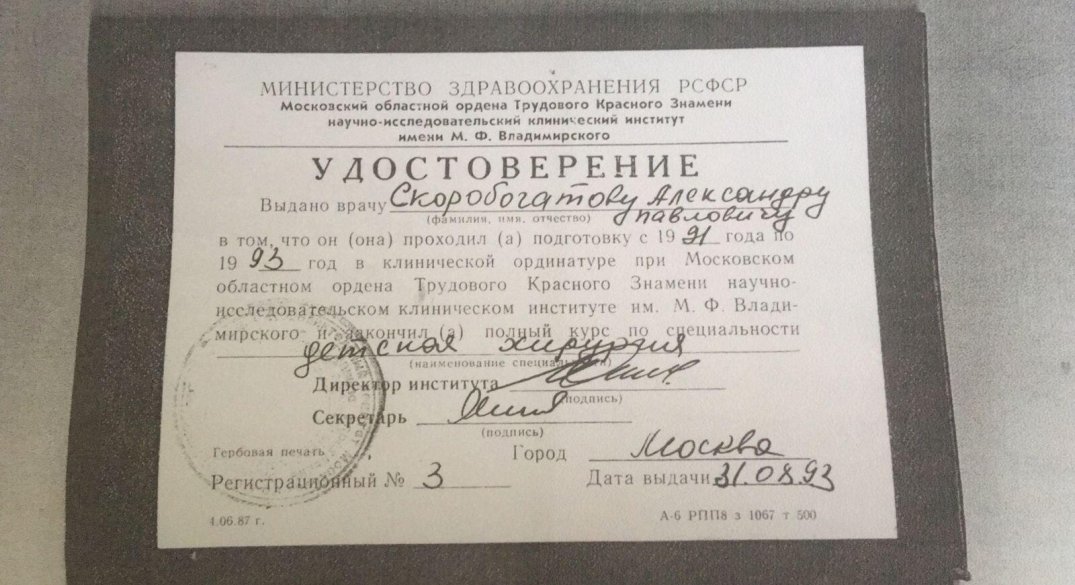 МИНИСТЕРСТВО ЗДРАВООХРАНЕНИЯ РСФСР
Московский областной ордена Трудового Красного Знамени
научно-исследовательский клинический институт
имени М. Ф. Владимирского
УДОСТОВЕРЕНИЕ
Выдано врачу Скоробогатову Александру
(фамилия, имя, отчество) Павловичу
в том, что он (она) проходил (а) подготовку с 1991 года по
1993 год в клинической ординатуре при Московском
областном ордена Трудового Красного Знамени научно-
исследовательском клиническом институте им. М. Ф. Влади-
мирского и закончил (а) полный курс по специальности
детская хирургия
(наименование специальности)
Директор института
(подпись)
Секретарь
(подпись)
Гербовая печать Город Москва
Регистрационный № 3 Дата выдачи 31.08.93
4.06.87 г. А-6 РПП8 з 1067 т 500